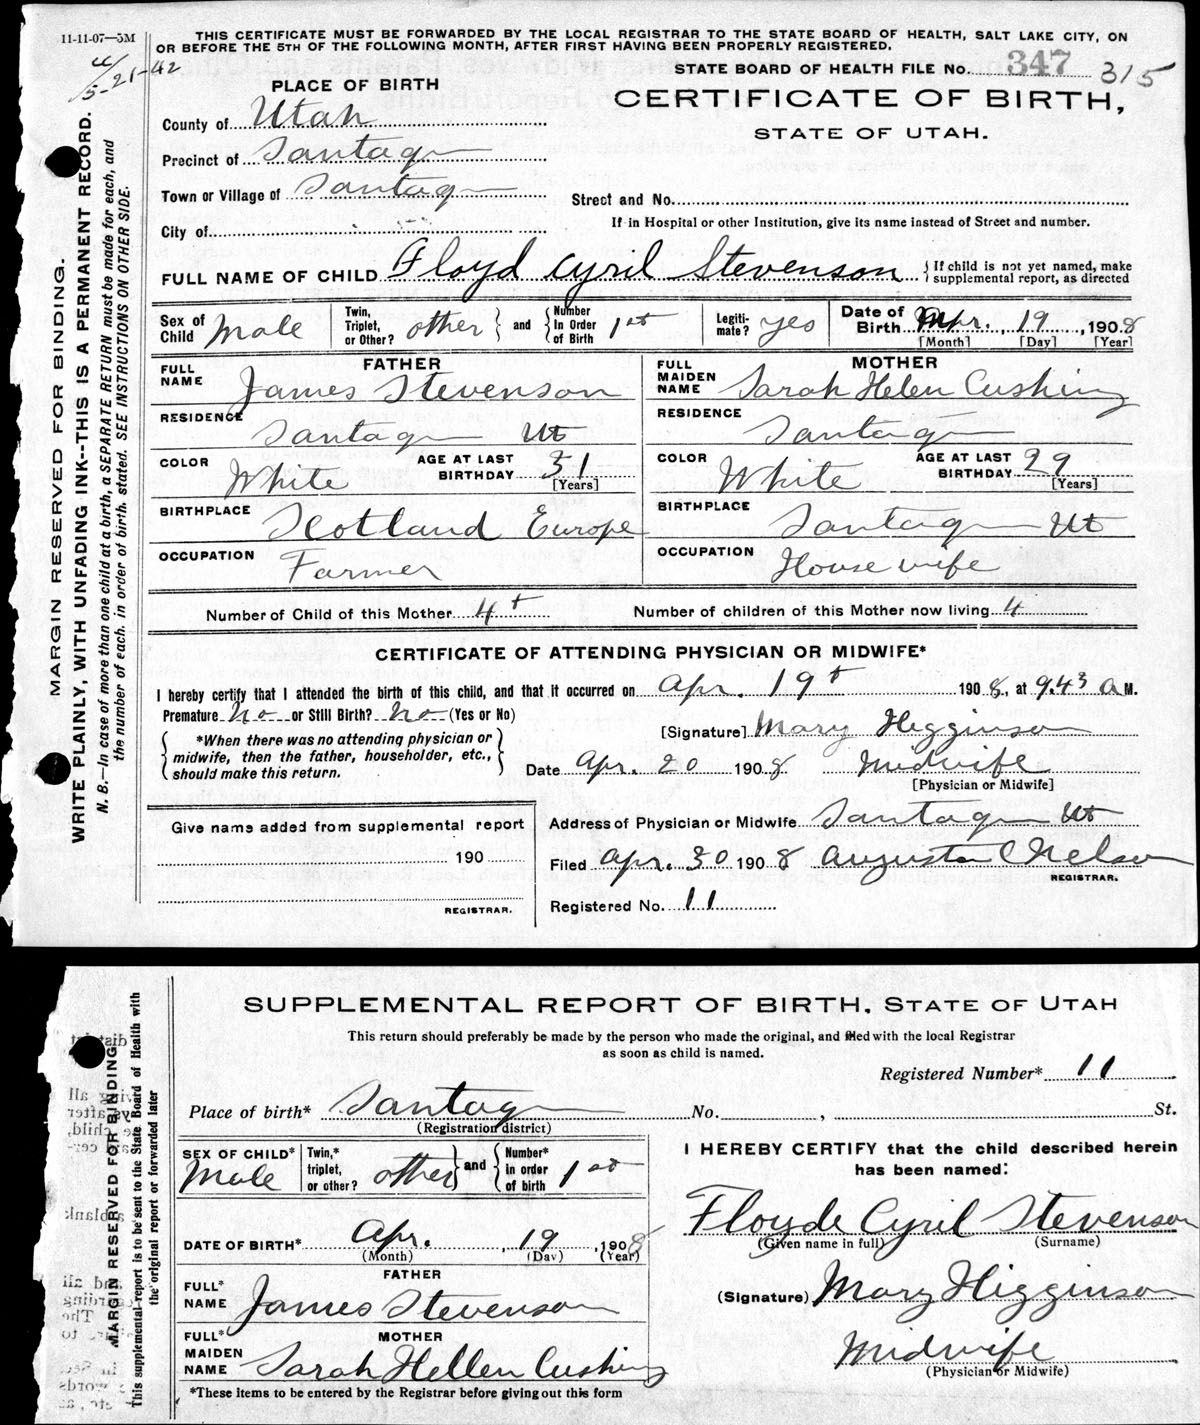 11-11-07—5M
THIS CERTIFICATE MUST BE FORWARDED BY THE LOCAL REGISTRAR TO THE STATE BOARD OF HEALTH, SALT LAKE CITY, ON
OR BEFORE THE 5TH OF THE FOLLOWING MONTH, AFTER FIRST HAVING BEEN PROPERLY REGISTERED.
5-21-42
STATE BOARD OF HEALTH FILE No. 347 315
PLACE OF BIRTH
CERTIFICATE OF BIRTH,
STATE OF UTAH.
County of Utah
Precinct of Santaquin
Town or Village of Santaquin
Street and No.
If in Hospital or other Institution, give its name instead of Street and number.
City of
FULL NAME OF CHILD Floyd Cyril Stevenson { If child is not yet named, make
supplemental report, as directed
Sex of Child Male Twin, Triplet, or Other? other and Number In Order of Birth 1st Legiti- mate? yes Date of Birth Apr. 19, 1908
[Month] [Day] [Year]
FATHER MOTHER
FULL NAME James Stevenson FULL MAIDEN NAME Sarah Helen Cushing
RESIDENCE Santaquin Ut RESIDENCE Santaquin
COLOR White AGE AT LAST BIRTHDAY 31 [Years] COLOR White AGE AT LAST BIRTHDAY 29 [Years]
BIRTHPLACE Scotland Europe BIRTHPLACE Santaquin Ut
OCCUPATION Farmer OCCUPATION House wife
Number of Child of this Mother 4t Number of children of this Mother now living 4
CERTIFICATE OF ATTENDING PHYSICIAN OR MIDWIFE*
I hereby certify that I attended the birth of this child, and that it occurred on Apr. 19t 1908, at 9.43 A M.
Premature No or Still Birth? No (Yes or No)
*When there was no attending physician or
midwife, then the father, householder, etc.,
should make this return.
[Signature] Mary Higginson
Date Apr. 20 1908 Midwife
[Physician or Midwife]
Give name added from supplemental report
190
REGISTRAR.
Address of Physician or Midwife Santaquin Ut
Filed Apr. 30 1908 Augusta C Nelson
REGISTRAR.
Registered No. 11
MARGIN RESERVED FOR BINDING.
WRITE PLAINLY, WITH UNFADING INK--THIS IS A PERMANENT RECORD.
N. B.—In case of more than one child at a birth, a SEPARATE RETURN must be made for each, and
the number of each, in order of birth, stated. SEE INSTRUCTIONS ON OTHER SIDE.
SUPPLEMENTAL REPORT OF BIRTH, STATE OF UTAH
This return should preferably be made by the person who made the original, and filed with the local Registrar
as soon as child is named.
Registered Number* 11
Place of birth* Santaquin No. , St.
(Registration district)
SEX OF CHILD* Male Twin,* triplet, or other? other and Number* in order of birth 1st
DATE OF BIRTH* Apr. , 19 , 1908
(Month) (Day) (Year)
FATHER
FULL* NAME James Stevenson
MOTHER
FULL* MAIDEN NAME Sarah Hellen Cushing
*These items to be entered by the Registrar before giving out this form
I HEREBY CERTIFY that the child described herein
has been named:
Floyde Cyril Stevenson
(Given name in full) (Surname)
(Signature) Mary Higginson
Midwife
(Physician or Midwife)
MARGIN RESERVED FOR BINDING
This supplemental report is to be sent to the State Board of Health with
the original report or forwarded later